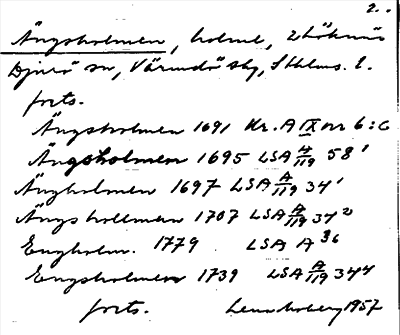 2.
Ängsholmen, holme, Stöknäs
Djurö sn, Värmdö skg, Sthlms l.
forts.
Ängsholmen 1691 Kr. A IX nr 6:6
Ängsholmen 1695 LSA A/119 58¹
Ängholmen 1697 LSA A/119 34¹
Ängshollmen 1707 LSA A/119 34²
Engholm. 1779 LSA A 36
Engsholmen 1739 LSA A/119 344
forts. 1957